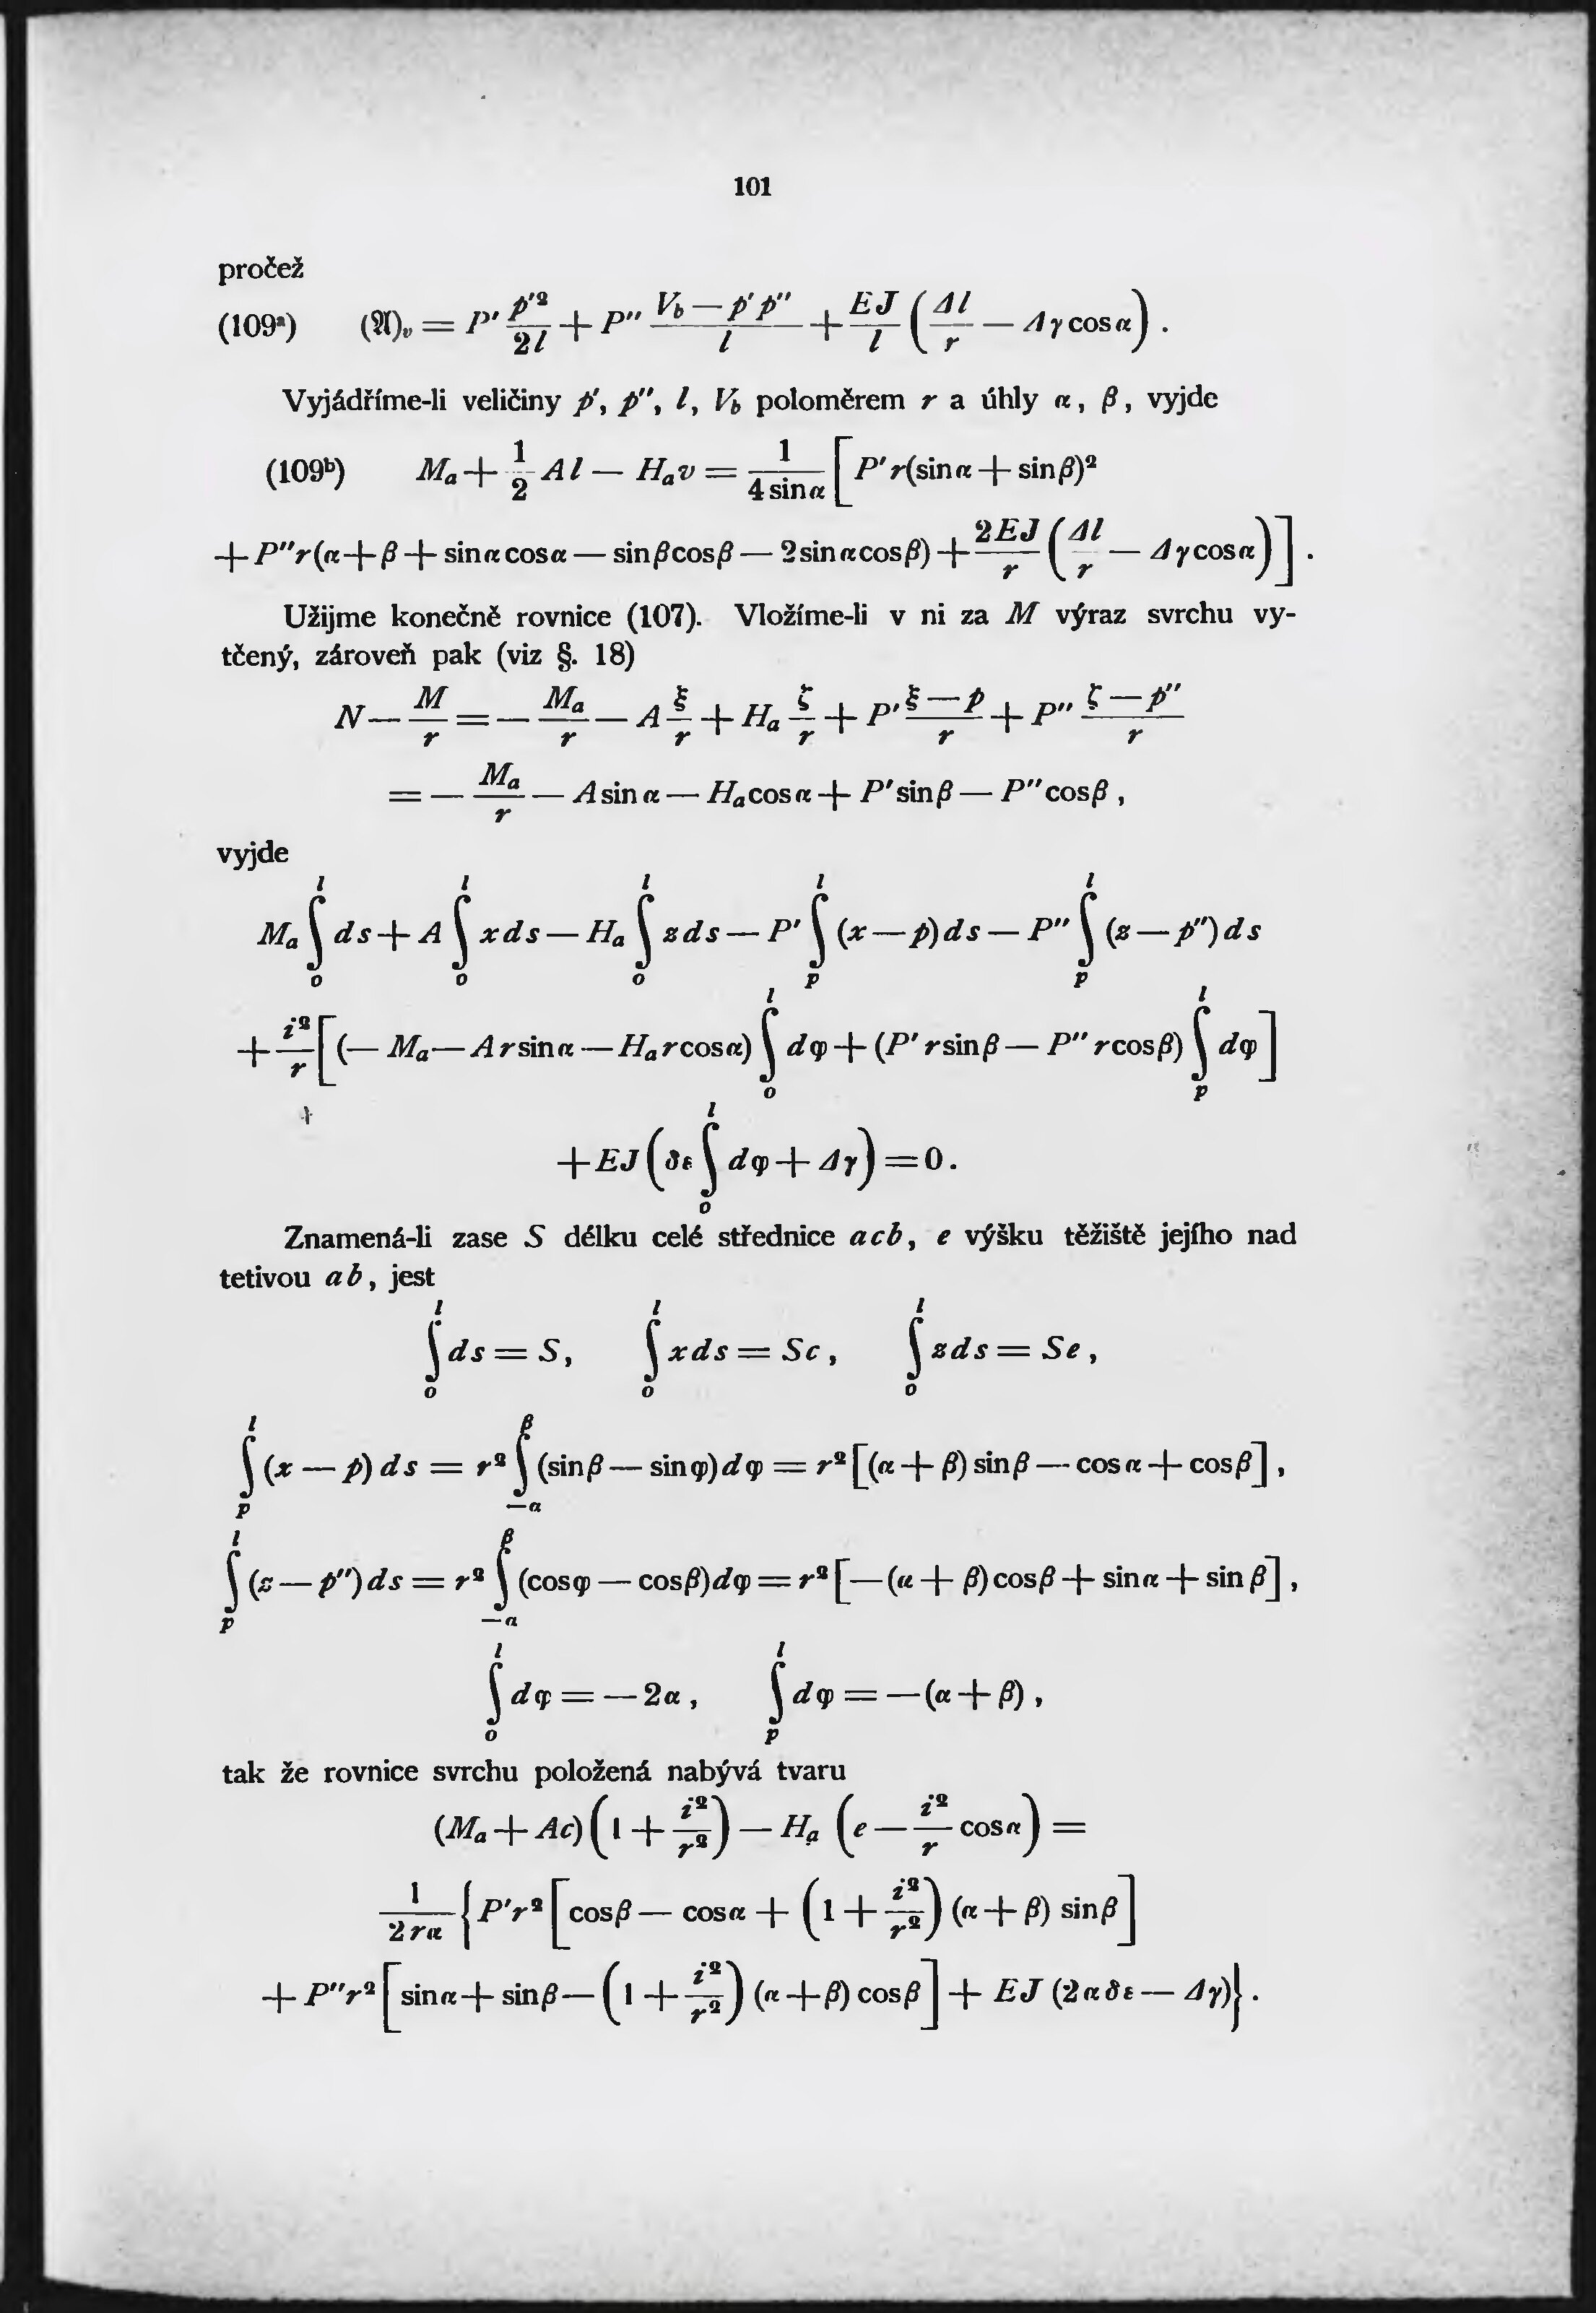 101
pročež
(109ᵃ) (𝔄)ᵥ = P' p'²/2l + P'' (V_b — p' p'')/l + EJ/l (Δl/r — Δγ cos α) .
Vyjádříme-li veličiny p', p'', l, V_b poloměrem r a úhly α, β, vyjde
(109ᵇ) M_a + 1/2 A l — H_a v = 1/(4 sin α) [ P' r (sin α + sin β)²
+ P'' r (α + β + sin α cos α — sin β cos β — 2 sin α cos β) + 2EJ/r (Δl/r — Δγ cos α) ] .
Užijme konečně rovnice (107). Vložíme-li v ni za M výraz svrchu vy-
tčený, zároveň pak (viz §. 18)
N — M/r = — M_a/r — A ξ/r + H_a ζ/r + P' (ξ — p)/r + P'' (ζ — p'')/r
= — M_a/r — A sin α — H_a cos α + P' sin β — P'' cos β ,
vyjde
M_a ∫_o^l ds + A ∫_o^l x ds — H_a ∫_o^l z ds — P' ∫_p^l (x — p) ds — P'' ∫_p^l (z — p'') ds
+ i²/r [ (— M_a — A r sin α — H_a r cos α) ∫_o^l dφ + (P' r sin β — P'' r cos β) ∫_p^l dφ ]
+ EJ (δε ∫_o^l dφ + Δγ) = 0 .
Znamená-li zase S délku celé střednice acb, e výšku těžiště jejího nad
tetivou ab, jest
∫_o^l ds = S, ∫_o^l x ds = Sc , ∫_o^l z ds = Se ,
∫_p^l (x — p) ds = r² ∫_{—α}^β (sin β — sin φ) dφ = r² [(α + β) sin β — cos α + cos β] ,
∫_p^l (z — p'') ds = r² ∫_{—α}^β (cos φ — cos β) dφ = r² [— (α + β) cos β + sin α + sin β] ,
∫_o^l dφ = — 2α , ∫_p^l dφ = — (α + β) ,
tak že rovnice svrchu položená nabývá tvaru
(M_a + Ac) (1 + i²/r²) — H_a (e — i²/r cos α) =
1/(2rα) { P' r² [ cos β — cos α + (1 + i²/r²) (α + β) sin β ]
+ P'' r² [ sin α + sin β — (1 + i²/r²) (α + β) cos β ] + EJ (2αδε — Δγ) } .